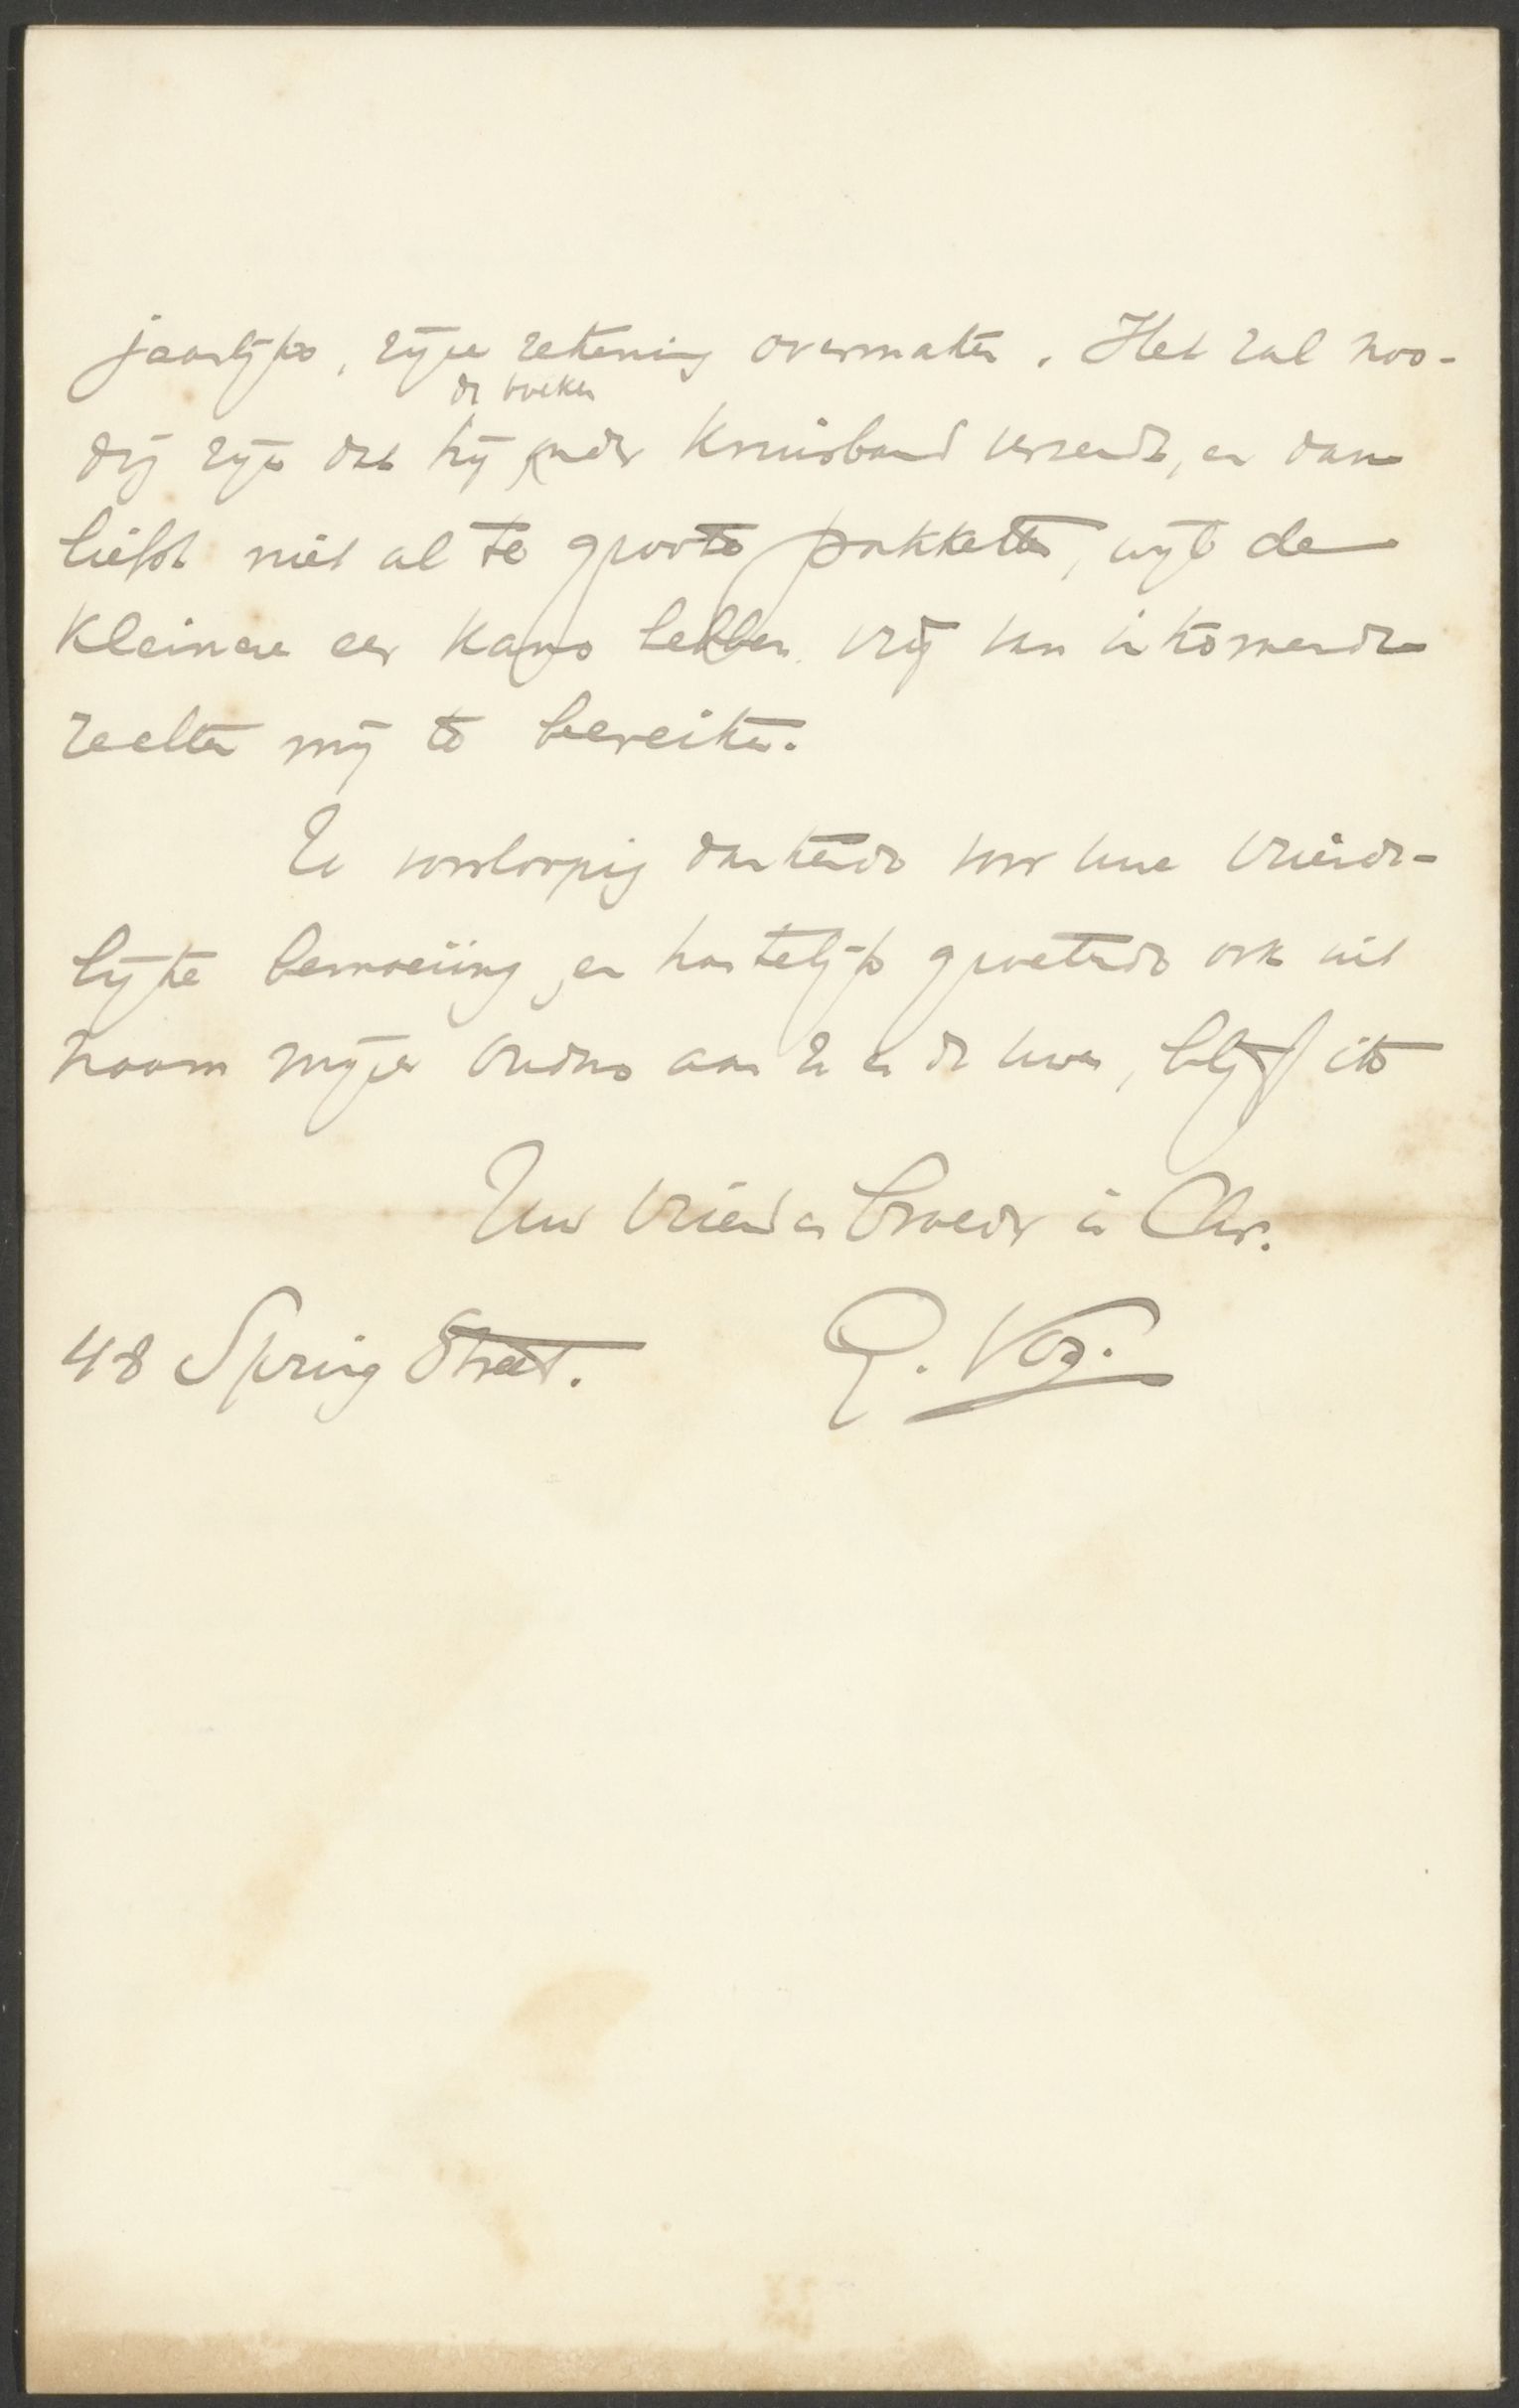 jaarlijks, zijne rekening overmaken. Het zal noo-
de boeken
dig zijn dat hij onder kruisband verzendt, en dan
liefst niet al te groote pakketten, wijl de
kleinere eer kans hebben vrij van inkomende
rechten mij te bereiken.
U voorloopig dankende voor uwe vriende-
lijke bemoeiing, en hartelijk groetende ook uit
naam mijner ouders aan U en de uwen, blijf ik
Uw vriend en broeder in Chr.
48 Spring Street. G. Vos.